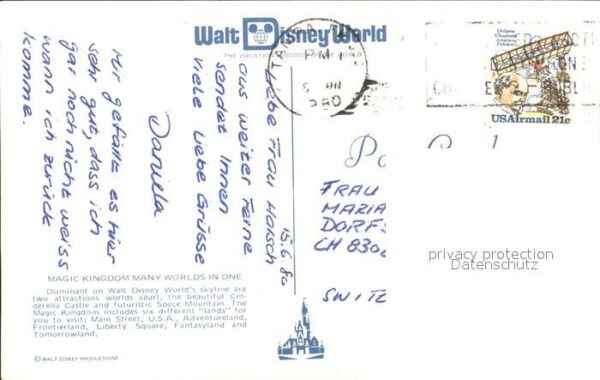 Walt Disney World
THE VACATION KINGDOM OF THE WORLD
15.6.80
Liebe Frau
aus weiter Ferne
sendet Innen
viele liebe Grüsse
Daniela
Mir gefällt es hier
sehr gut, dass ich
gar noch nicht weiss
wann ich zurück
komme.
MAGIC KINGDOM MANY WORLDS IN ONE
Dominant on Walt Disney World's skyline are
two attractions worlds apart, the beautiful Cin-
derella Castle and futuristic Space Mountain. The
Magic Kingdom includes six different "lands" for
you to visit; Main Street, U.S.A., Adventureland,
Frontierland, Liberty Square, Fantasyland and
Tomorrowland.
© WALT DISNEY PRODUCTIONS
PM
Octave
Chanute
Aviation
Pioneer
USAirmail 21c
FRAU
MARIA
DORFS
CH 8306
SWITZ
privacy protection
Datenschutz